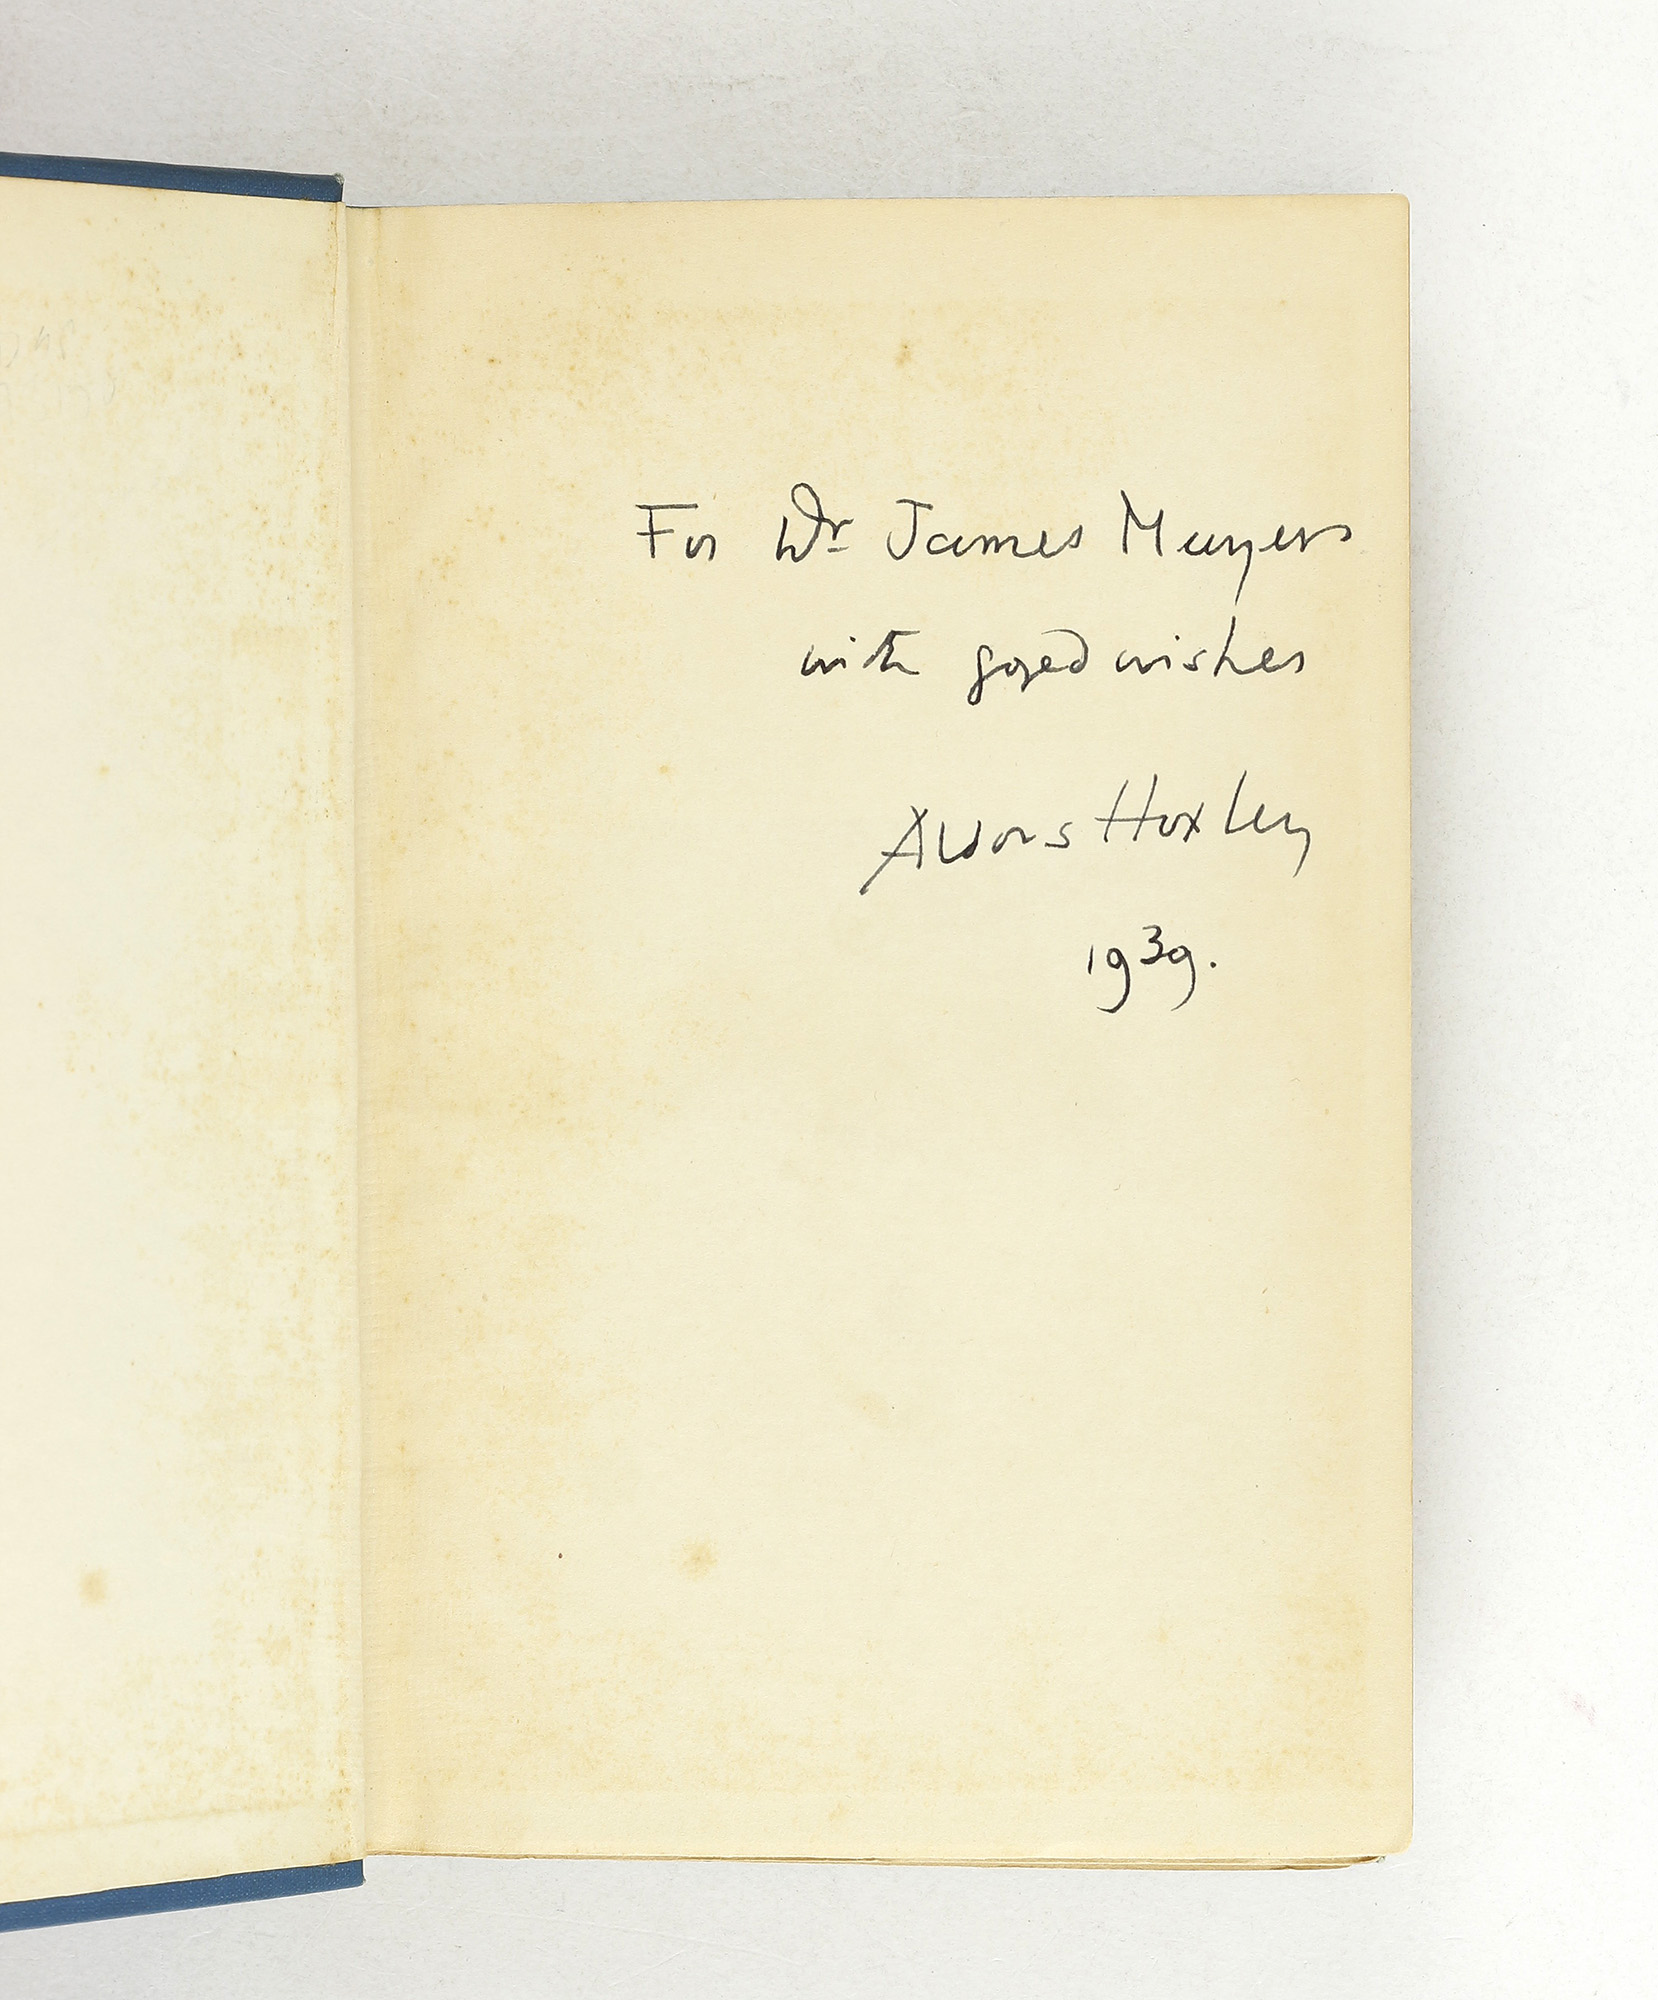 For Dr James Meyers
with good wishes
Aldous Huxley
1939.